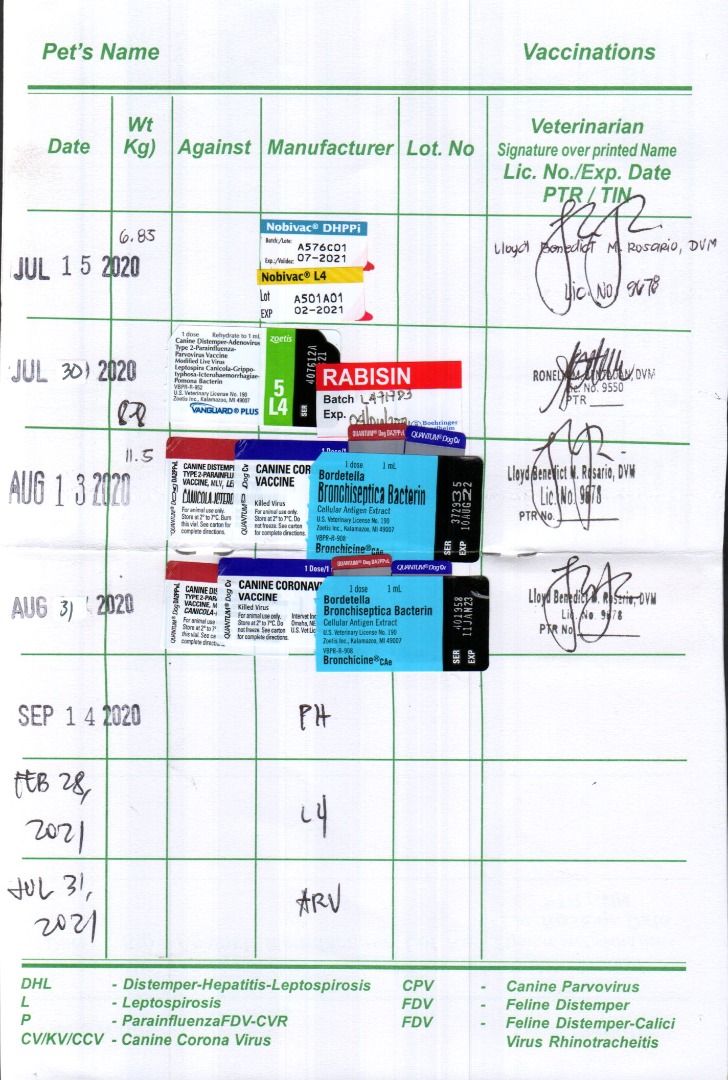 Pet's Name Vaccinations
Date Wt Kg) Against Manufacturer Lot. No Veterinarian
Signature over printed Name
Lic. No./Exp. Date
PTR / TIN
JUL 15 2020
6.85
Nobivac® DHPPi
Batch/Lote:
A576C01
Exp./Valider: 07-2021
Nobivac® L4
Lot A501A01
EXP 02-2021
Lloyd Benedict M. Rosario, DVM
Lic. No. 9678
JUL 30 2020
8.8
1 dose Rehydrate to 1 mL
Canine Distemper-Adenovirus
Type 2-Parainfluenza-
Parvovirus Vaccine
Modified Live Virus
Leptospira Canicola-Grippo-
typhosa-Icterohaemorrhagiae-
Pomona Bacterin
VBPR-R-952
U.S. Veterinary License No. 190
Zoetis Inc., Kalamazoo, MI 49007
VANGUARD® PLUS
zoetis
5
L4
SER
RABISIN
Batch
Exp.
Boehringer
DVM
Lic. No. 9550
PTR
AUG 13 2020
11.5
QUANTUM® Dog DA2PPvL
CANINE DISTEMP
TYPE 2-PARAINFLU
VACCINE, MLV, LE
For animal use only.
Store at 2° to 7°C. Burn
this vial. See carton for
complete directions.
QUANTUM® Dog Cv
CANINE COR
VACCINE
Killed Virus
For animal use only.
Store at 2° to 7°C. Do
not freeze. See carton
for complete directions.
QUANTUM® Dog DA2PPvL
QUANTUM® Dog Cv
1 dose 1 mL
Bordetella
Bronchiseptica Bacterin
Cellular Antigen Extract
U.S. Veterinary License No. 190
Zoetis Inc., Kalamazoo, MI 49007
VBPR-R-908
Bronchicine®CAe
SER 372935
EXP 10AUG22
Lloyd Benedict M. Rosario, DVM
Lic. No. 9678
PTR No.
AUG 31 2020
QUANTUM® Dog DA2PPvL
CANINE DIS
TYPE 2-PARA
VACCINE, M
CANICOLA-
For animal use
Store at 2° to 7°
this vial. See ca
complete directi
1 Dose/1
QUANTUM® Dog Cv
CANINE CORONAV
VACCINE
Killed Virus
For animal use only.
Store at 2° to 7°C. Do
not freeze. See carton
for complete directions.
Intervet In
Omaha, NE
U.S. Vet Lic
QUANTUM® Dog DA2PPvL
QUANTUM® Dog Cv
1 dose 1 mL
Bordetella
Bronchiseptica Bacterin
Cellular Antigen Extract
U.S. Veterinary License No. 190
Zoetis Inc., Kalamazoo, MI 49007
VBPR-R-908
Bronchicine®CAe
SER 401958
EXP 11JAN23
Lloyd Benedict M. Rosario, DVM
Lic. No. 9678
PTR No.
SEP 14 2020 PH
FEB 28,
2021 L4
JUL 31,
2021 ARV
DHL - Distemper-Hepatitis-Leptospirosis CPV - Canine Parvovirus
L - Leptospirosis FDV - Feline Distemper
P - ParainfluenzaFDV-CVR FDV - Feline Distemper-Calici
CV/KV/CCV - Canine Corona Virus Virus Rhinotracheitis